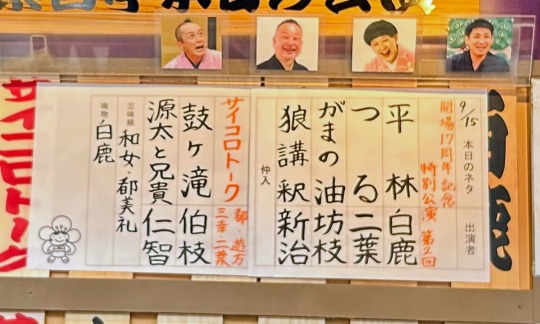 9/15 本日のネタ 出演者
開場17周年記念
特別公演 第2回
平林 白鹿
つる 二葉
がまの油 坊枝
狼講釈 新治
仲入
サイコロトーク
遊方
三幸 二葉
鼓ヶ滝 伯枝
源太と兄貴 仁智
三味線 和女・都美礼
鳴物 白鹿
サイコロトーク